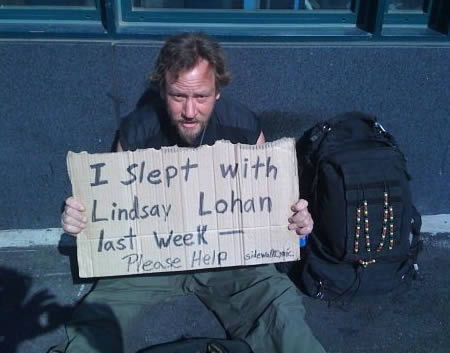 I Slept with
Lindsay Lohan
last Week —
Please Help sidewalkLyric